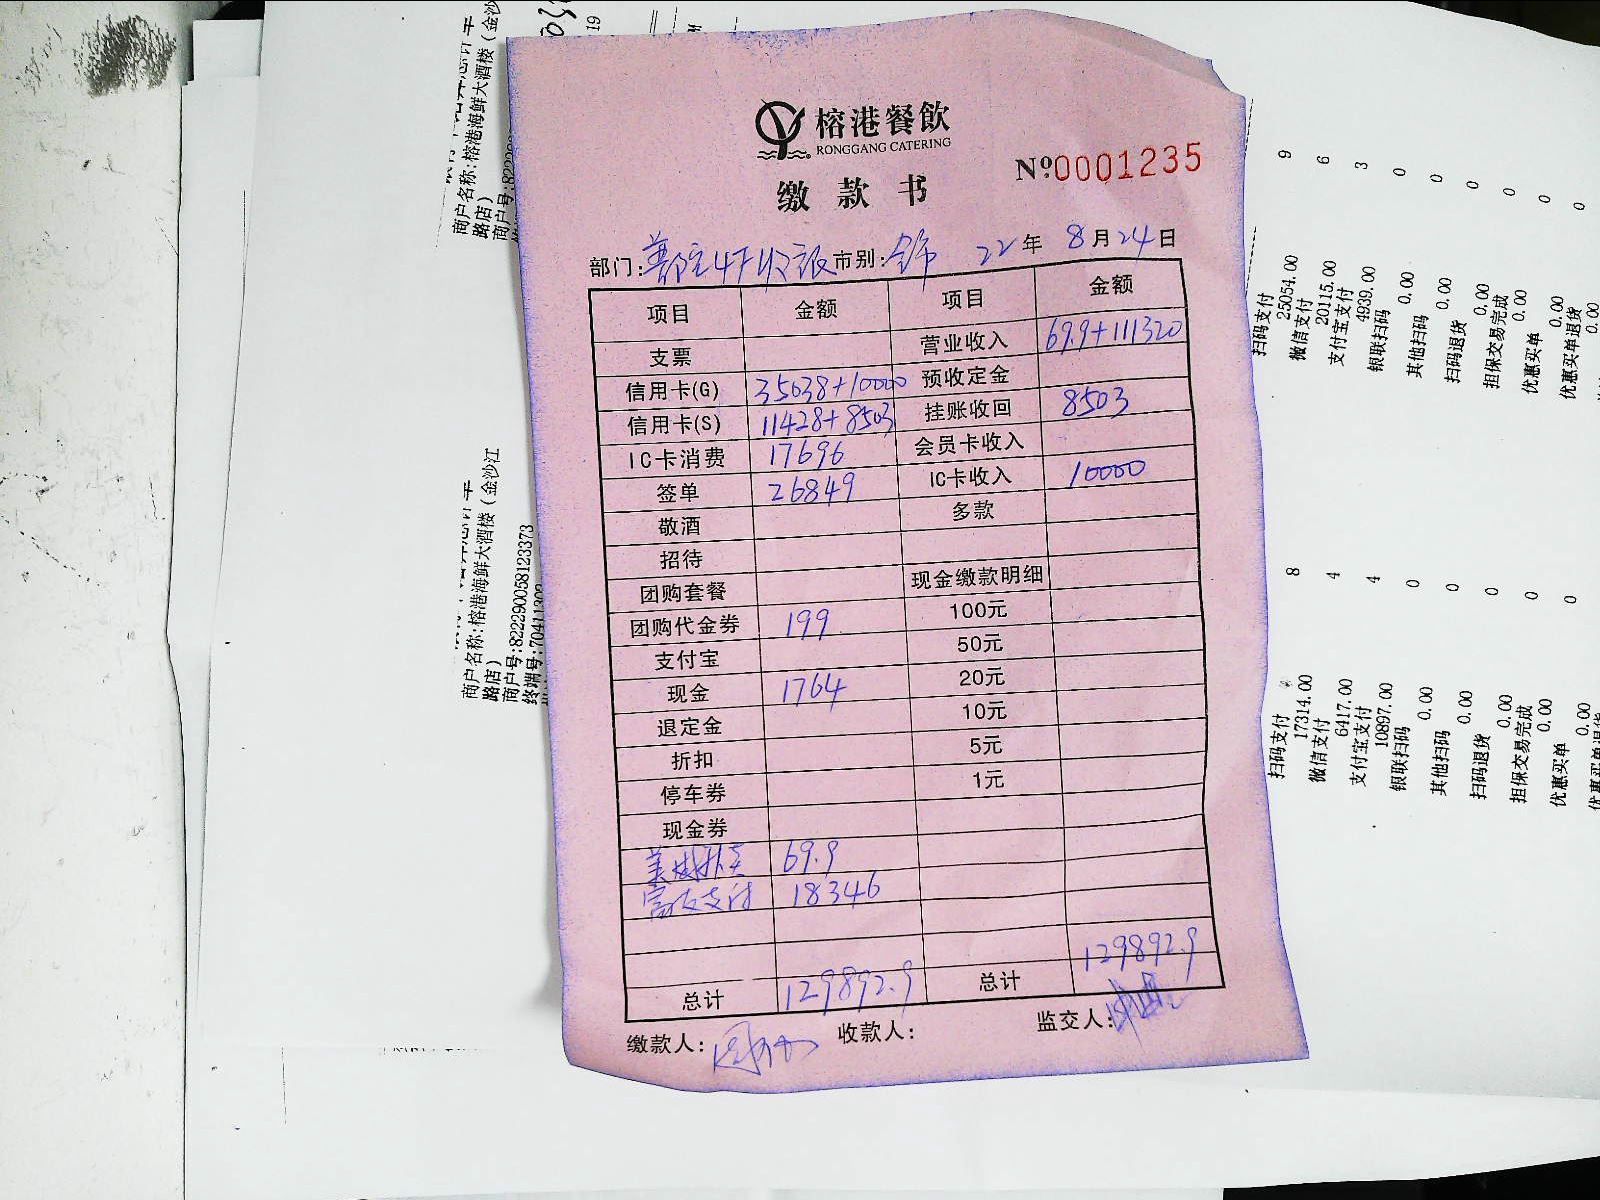 榕港餐飲
RONGGANG CATERING
缴 款 书
№0001235
部门: 市别: 全市 22年 8月24日
项目 金额 项目 金额
支票 营业收入 69.9+111320
信用卡(G) 35038+10000 预收定金
信用卡(S) 11428+8503 挂账收回 8503
IC卡消费 17696 会员卡收入
签单 26849 IC卡收入 10000
敬酒 多款
招待
团购套餐 现金缴款明细
团购代金券 199 100元
支付宝 50元
现金 1764 20元
退定金 10元
折扣 5元
停车券 1元
现金券
美团外卖 69.9
支付 18346
总计 129892.9 总计 129892.9
缴款人: 收款人: 监交人:
商户名称:榕港海鲜大酒楼(金沙
路店)
商户号:8222
商户名称:榕港海鲜大酒楼(金沙江
路店)
商户号:822290058123373
终端号:70411302
扫码支付 9
25054.00
微信支付 6
20115.00
支付宝支付 3
4939.00
银联扫码 0
0.00
其他扫码 0
0.00
扫码退货 0
0.00
担保交易完成 0
0.00
优惠买单 0
0.00
优惠买单退货 0
0.00
扫码支付 8
17314.00
微信支付 4
6417.00
支付宝支付 4
10897.00
银联扫码 0
0.00
其他扫码 0
0.00
扫码退货 0
0.00
担保交易完成 0
0.00
优惠买单 0
0.00